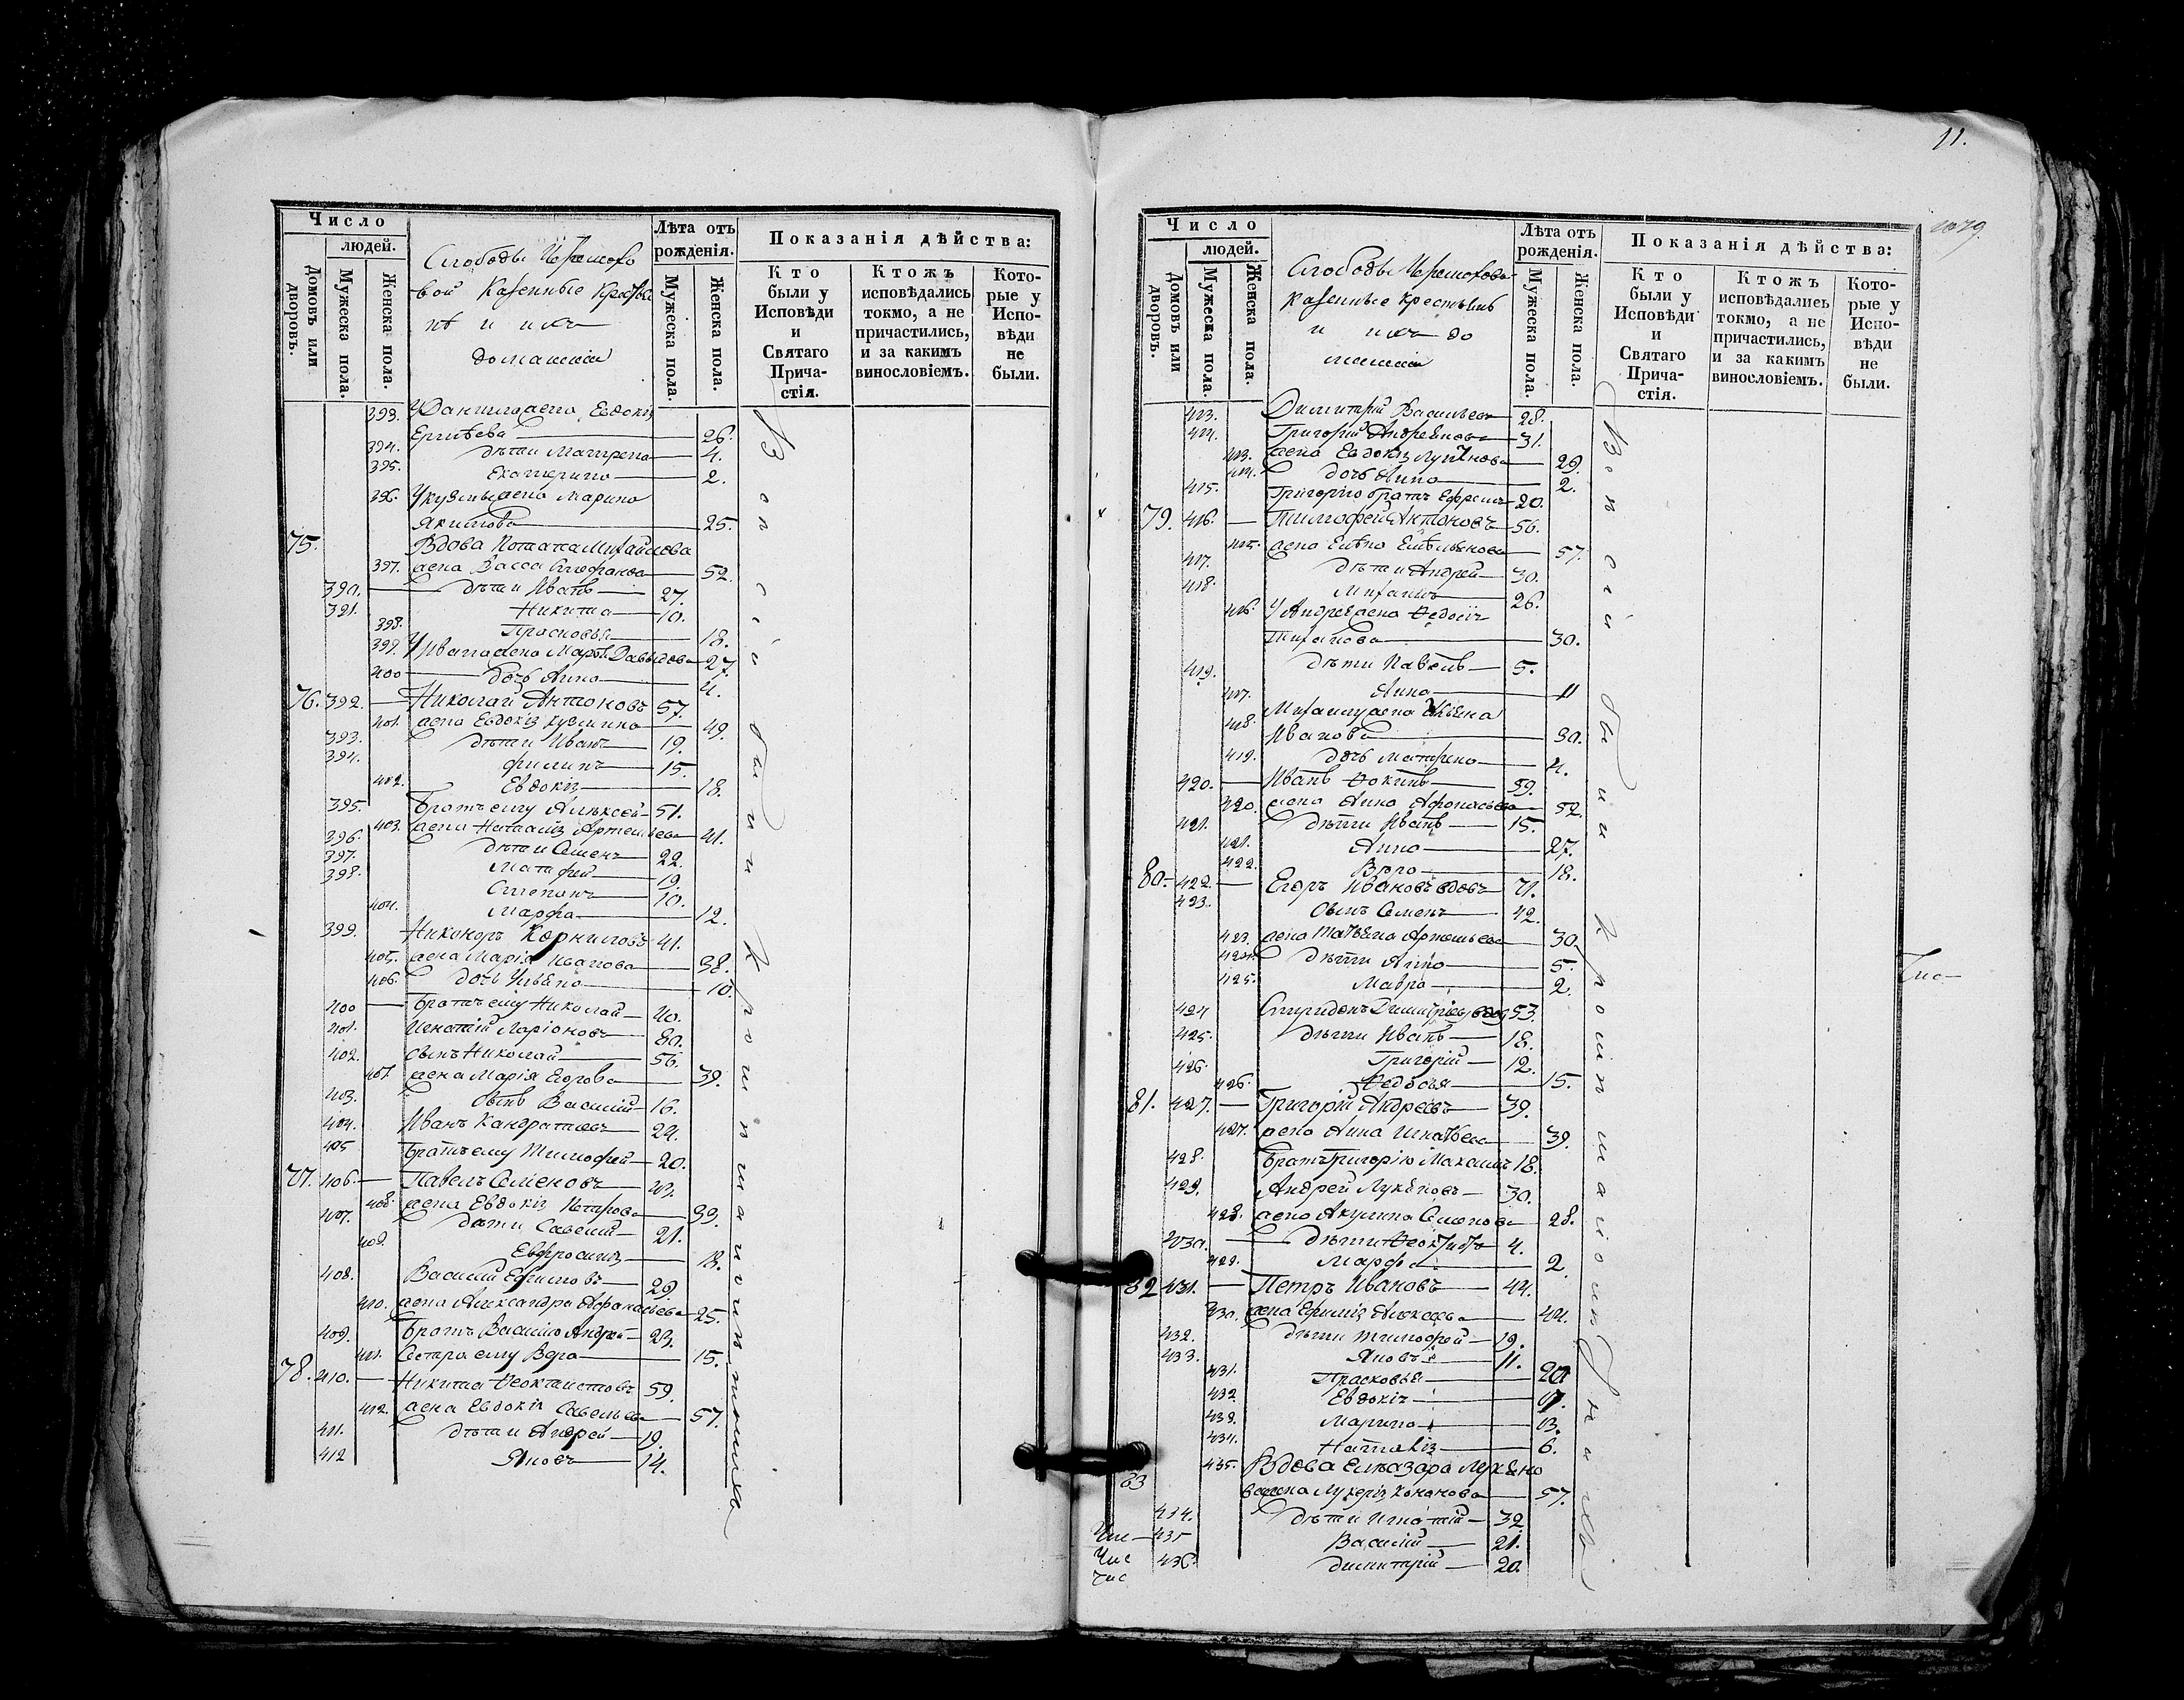 Число
людей.
Домовъ или дворовъ.
Мужеска пола.
Женска пола.
Слободы Черемхо
вой Казенные Крестья
нѣ и ихъ
домашніи
Лѣта отъ рожденія.
Мужеска пола.
Женска пола.
Показанія дѣйства:
Кто были у Исповѣди и Святаго Причастія.
Ктожъ исповѣдались токмо, а не причастились, и за какимъ винословіемъ.
Которые у Исповѣди не были.
393. У Данила жена Евдокія
26.
394. дѣти Матрена 4.
395. Екатерина 2.
396. У Кузмы жена Марина
Якимова 25.
75. Вдова Потапа Михайлова
397. жена Васса Стефанова 52.
390. дѣти Иванъ 27.
391. Никита 10.
398. Прасковья 18.
399. У Ивана жена Марѳа Давыдова 27.
400 дочь Анна 4.
76. 392. Николай Антоновъ 57.
401. жена Евдокія Кузмина 49.
393. дѣти Иванъ 19.
394. Филипъ 15.
402. Евдокія 18.
395. Братъ ему Алѣксей 51.
403. жена Наталія Артемьева 41.
396. дѣти Семенъ 22.
397. Матфей 19.
398. Степанъ 10.
404. Марфа 12.
399. Никоноръ Корниловъ 41.
405. жена Марія Иванова 38.
406. дочь Ульяна 10.
400 Братъ ему Николай 40.
401. Игнатій Ларіоновъ 80.
402. сынъ Николай 56.
407 жена Марія Егорова 39.
403. сынъ Василій 16.
404. Иванъ Кандратьевъ 24.
405 Братъ ему Тимофей 20.
77. 406. Павелъ Семеновъ 43.
408. жена Евдокія Петрова 39.
407. дѣти Савелий 21.
409. Евфросинія 18.
408. Василий Ефимовъ 29.
410. жена Александра Афанасьева 25.
409. Братъ Василию Андрей 23.
411. Сестра ему Вера 15.
78. 410. Никита Феоктистовъ 59.
412. жена Евдокія Савельева 57.
411. дѣти Андрей 19.
412 Яковъ 14.
Вси сіи были
11.
1029.
Число
людей.
Домовъ или дворовъ.
Мужеска пола.
Женска пола.
Слободы Черемхово
Казенные Крестьянѣ
и ихъ до
машніи
Лѣта отъ рожденія.
Мужеска пола.
Женска пола.
Показанія дѣйства:
Кто были у Исповѣди и Святаго Причастія.
Ктожъ исповѣдались токмо, а не причастились, и за какимъ винословіемъ.
Которые у Исповѣди не были.
413. Димитрій Васильевъ 28.
414. Григорій Андреяновъ 31.
413. жена Евдокія Лукянова 29.
414. дочь Анна 2.
415. Григорію братъ Ефремъ 20.
79. 416. Тимофей Антоновъ 56.
415. жена Елѣна Емѣльянова 57.
417. дѣти Андрей 30.
418. Михаилъ 26.
416. У Андрея жена Федосія
30.
419. дѣти Павелъ 5.
417. Анна 11
418. Михаилу жена Ульяна
Иванова 30.
419. дочь Матрена 4.
420. Иванъ Фокинъ 59.
420. жена Анна Афонасьева 52.
421. дѣти Иванъ 15.
421. Анна 27.
422. Вера 18.
80. 422. Егоръ Ивановъ вдовъ 71.
423. сынъ Семенъ 42.
423. жена Татьяна Артемьева 30.
424. дѣти Анна 5.
425. Мавра 2.
424 Спиридонъ Димитріевъ вдов 53.
425. дѣти Иванъ 18.
426. Григорій 12.
426. Федосья 15.
81. 427. Григорій Андреевъ 39.
427. жена Анна Игнатьева 39.
428. Братъ Григорію Михаилъ 18.
429. Андрей Лукяновъ 30.
428. жена Акулина Семенова 28.
430. дѣти Феоктистъ 4.
429. Марфа 2.
82 431. Петръ Ивановъ 44.
430. жена Ефимія Алексѣева 44.
432. дѣти Тимофей 19.
433. Яковъ 11.
431. Прасковья 20
432 Евдокія 17.
433. Марина 13.
434. Наталія 6.
83 435. Вдова Елѣазара Лукяно
ва жена Лукерія Кононова 57.
434. дѣти Игнатій 32
435 Василій 21.
436. Димитрій 20.
Вси сіи были
Чис
Чис
Чис
Чис